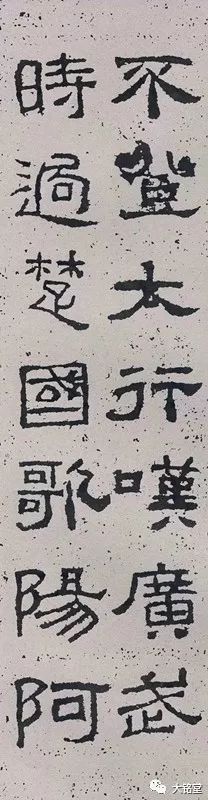 不登太行嘆廣武
時過楚國歌陽阿
大铭堂